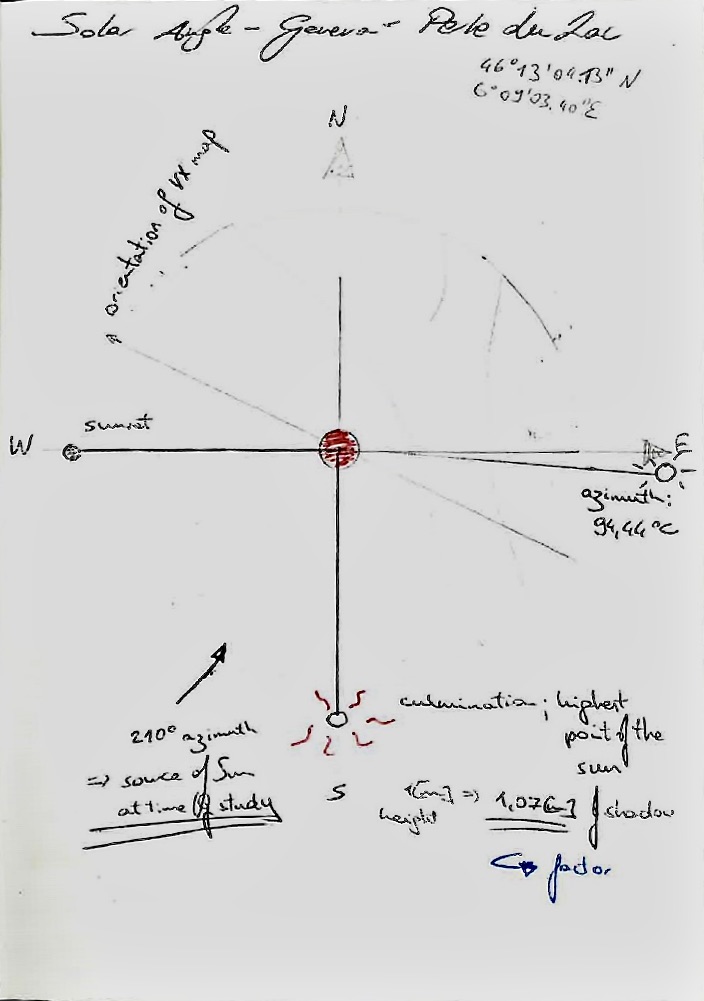 Solar Angle - Geneva - Perle du Lac
46°13'04.13" N
6°09'03.40"E
N
orientation of VX map
sunset
W
E
azimuth:
94,44°C
culmination; highest
point of the
sun
210° azimuth
=> source of Sun
at time of study
S
1[m] => 1,07[m] of shadow
height
factor